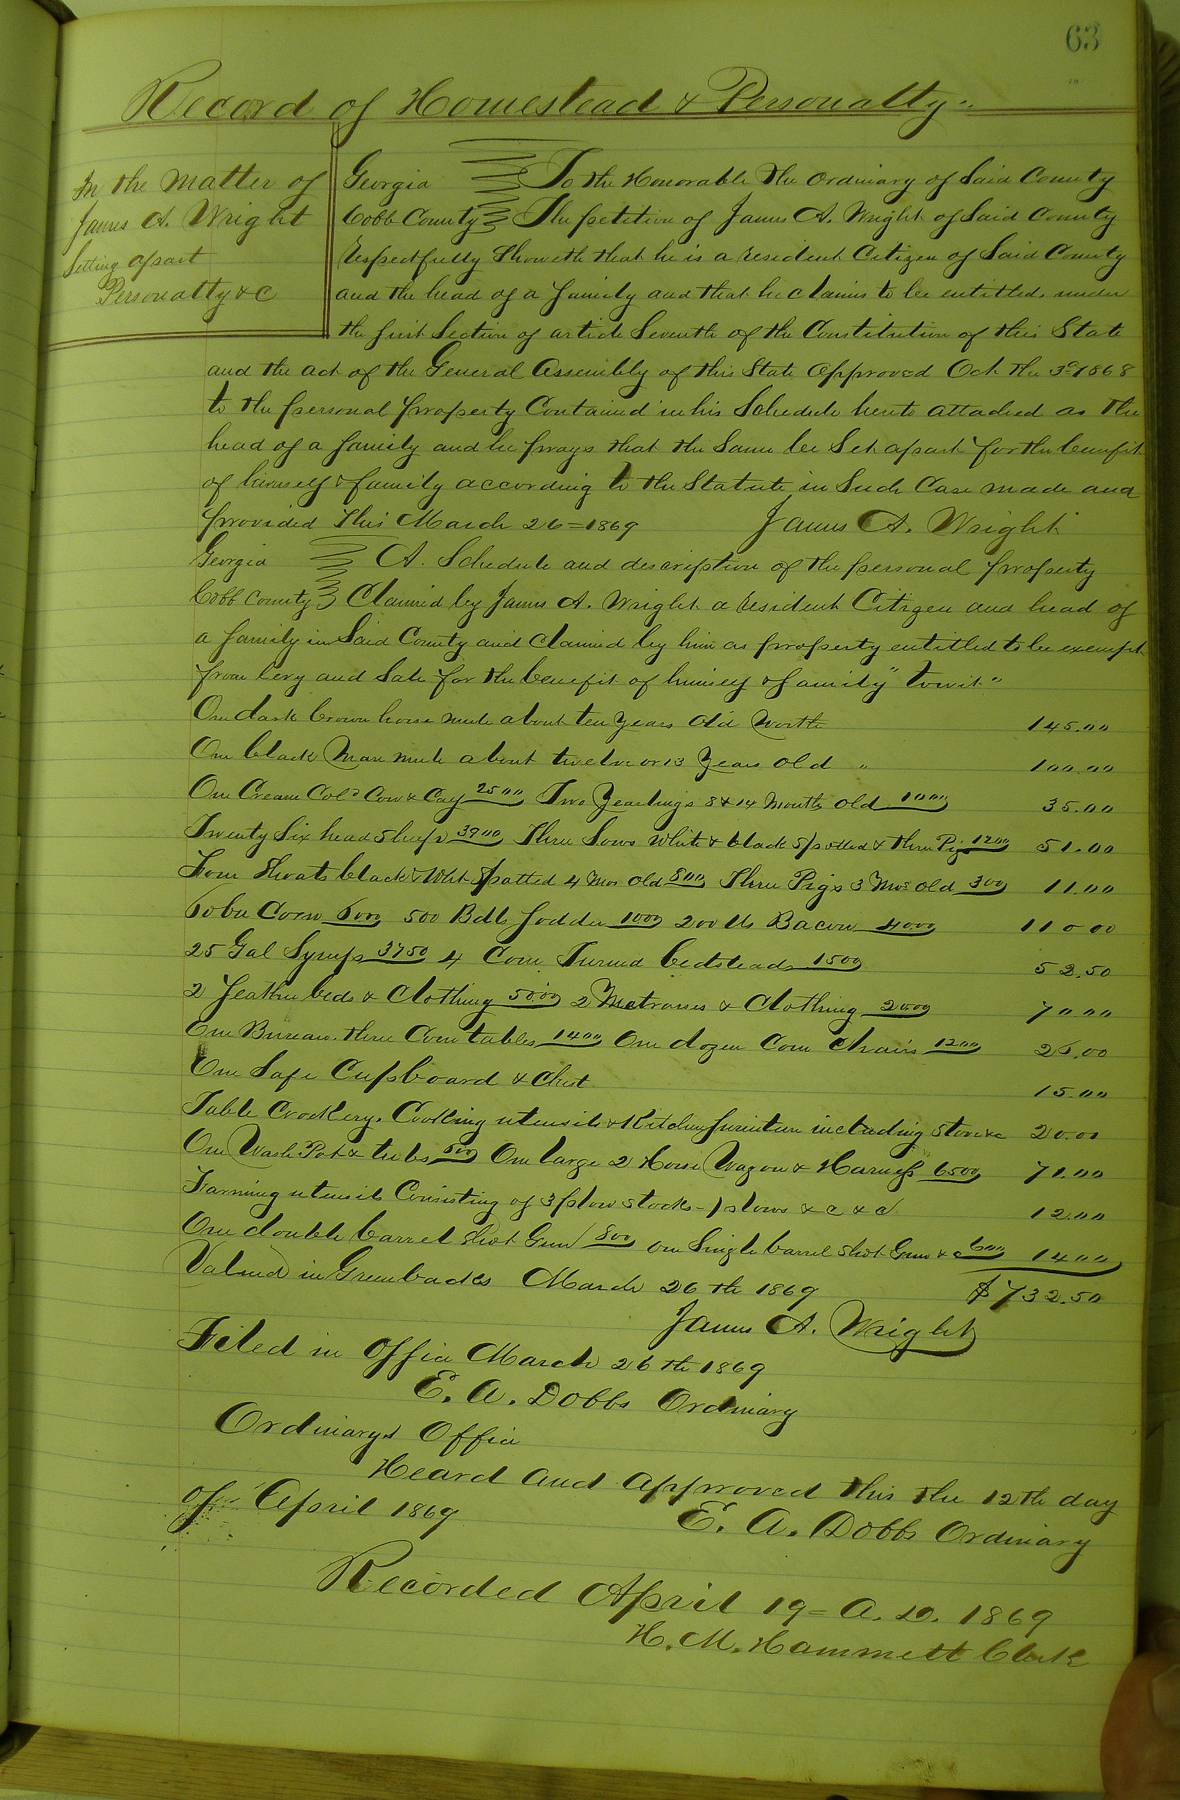 63
Record of Homestead & Personalty
In the matter of
James A. Wright
Setting apart
Personalty &c
Georgia To the Honorable the Ordinary of Said County
Cobb County The petition of James A. Wright of Said County
respectfully Showeth that he is a resident Citizen of Said County
and the head of a family and that he claims to be entitled, under
the first Section of article Seventh of the Constitution of this State
and the act of the General Assembly of this State approved Oct the 3d 1868
to the personal property Contained in his Schedule hereto attached as the
head of a family and he prays that the Same be Set apart for the benefit
of himself & family according to the Statute in Such Case made and
provided This March 26=1869 James A. Wright
Georgia A. Schedule and description of the personal property
Cobb County Claimed by James A. Wright a resident Citizen and head of
a family in Said County and claimed by him as property entitled to be exempt
from levy and Sale for the benefit of himself & family "towit"
One dark brown horse mule about ten years old worth 145.00
One black Mare mule about twelve or 13 Years old " 100.00
One Cream Cold Cow & Caf 2500 Two Yearlings 8 & 14 Months old 1000 35.00
Twenty Six head Sheep 3900 Three Sows White & black Spotted & three Pigs 1200 51.00
Four Shoats black & White Spotted 4 Mos old 800 Three Pigs 3 Mos old 300 11.00
60 bu Corn 6000 500 Bdls fodder 1000 200 lbs Bacon 4000 110.00
25 Gal Syrup 3750 4 Com Turned bedsteads 1500 52.50
2 feather beds & Clothing 5000 2 Matrasses & Clothing 2000 70.00
One Bureau, three Com tables 1400 One dozen Com chairs 1200 26.00
One Safe Cupboard & Chest 15.00
Table Crockery, Cooking utensils & Kitchen furniture including Stove &c 20.00
One Wash Pot & tubs 600 One large 2 Horse Wagon & Harness 6500 71.00
Farming utensils Consisting of 3 plow stocks - plows &c &c 12.00
One double barrel Shot Gun 800 one Single barrel Shot Gun &c 600 14.00
Valued in Greenbacks March 26th 1869 $732.50
James A. Wright
Filed in office March 26th 1869
E. A. Dobbs Ordinary
Ordinarys Office
Heard and approved this the 12th day
of April 1869 E. A. Dobbs Ordinary
Recorded April 19=A.D. 1869
H. M. Hammett Clerk